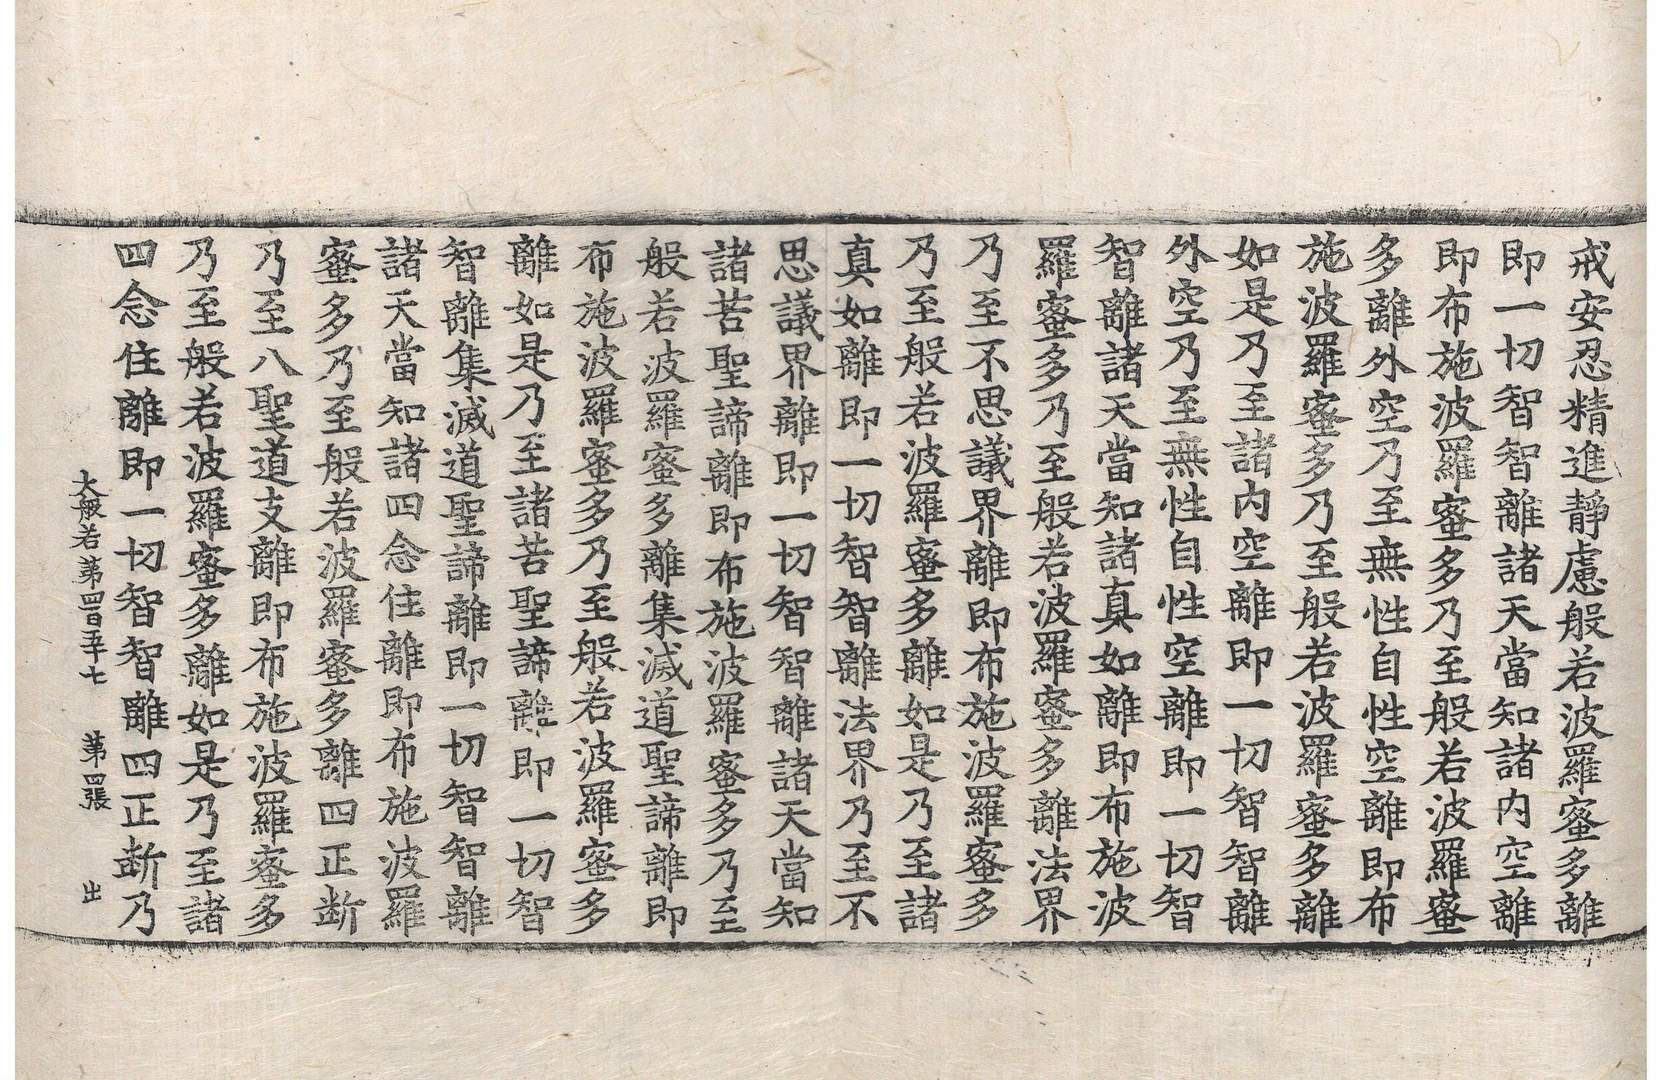 戒安忍精進靜慮般若波羅蜜多離
即一切智智離諸天當知諸内空離
即布施波羅蜜多乃至般若波羅蜜
多離外空乃至無性自性空離即布
施波羅蜜多乃至般若波羅蜜多離
如是乃至諸内空離即一切智智離
外空乃至無性自性空離即一切智
智離諸天當知諸真如離即布施波
羅蜜多乃至般若波羅蜜多離法界
乃至不思議界離即布施波羅蜜多
乃至般若波羅蜜多離如是乃至諸
真如離即一切智智離法界乃至不
思議界離即一切智智離諸天當知
諸苦聖諦離即布施波羅蜜多乃至
般若波羅蜜多離集滅道聖諦離即
布施波羅蜜多乃至般若波羅蜜多
離如是乃至諸苦聖諦離即一切智
智離集滅道聖諦離即一切智智離
諸天當知諸四念住離即布施波羅
蜜多乃至般若波羅蜜多離四正断
乃至八聖道支離即布施波羅蜜多
乃至般若波羅蜜多離如是乃至諸
四念住離即一切智智離四正断乃
大般若第四百五十七 第四張 出